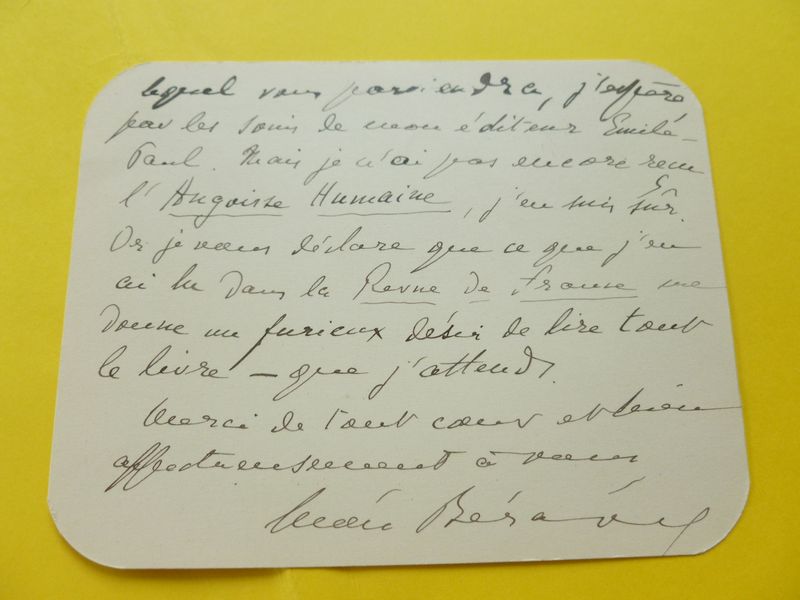 lequel vous parviendra, j'espère
par les soins de mon éditeur Emile-
Paul. Mais je n'ai pas encore reçu
l'Angoisse Humaine, j'en suis sûr.
Or je vous déclare que ce que j'en
ai lu dans la Revue de France me
donne un furieux désir de lire tout
le livre — que j'attends.
Merci de tout cœur et bien
affectueusement à vous